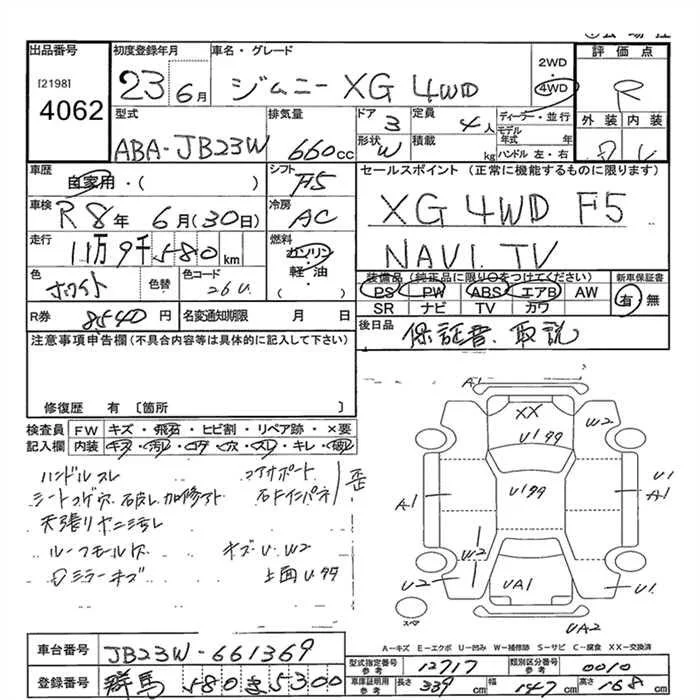 出品番号 初度登録年月 車名・グレード 評価点
[2198]
4062
23 6月 ジムニー XG 4WD 2WD 4WD R
型式 排気量 ドア 定員 ディーラー・並行 外装 内装
ABA-JB23W 660cc 3 4人 モデル年式 年
形状 W 積載 kg ハンドル 左・右
車歴 シフト セールスポイント (正常に機能するものに限ります)
自家用・( ) F5
車検 冷房 XG 4WD F5
R8年 6月(30日) AC
走行 燃料 NAVI. TV
11万9千580km ガソリン 軽・油 ( )
装備品(純正品に限り○をつけてください) 新車保証書
色 色替 色コード PS PW ABS エアB AW 有・無
ホワイト 26U SR ナビ TV カワ
R券 8540円 名変通知期限 月 日 後日品 保証書. 取説
注意事項申告欄(不具合内容等は具体的に記入して下さい)
修復歴 有〔箇所 〕
検査員 FW キズ・飛石・ヒビ割・リペア跡・×要
記入欄 内装 キズ・汚レ・コゲ・穴・スレ・キレ・破レ
ハンドルスレ コアサポート
シートコゲ穴 右インパネ 歪
天張りヤニ汚レ
ルーフモール キズ U. W2
ミラーキズ 上面 Uヲヲ
A1
XX W2
A1 U1 A1
W2
U2 UA1 U1
スペア
UA2
A-キズ E-エクボ U-凹み W-補修跡 S-サビ C-腐食 XX-交換済
車台番号 JB23W-661369
型式指定番号 参考 12717 類別区分番号 参考 0010
登録番号 群馬 580 き 5300
車庫証明用 参考 長さ 339cm 幅 147cm 高さ 168cm